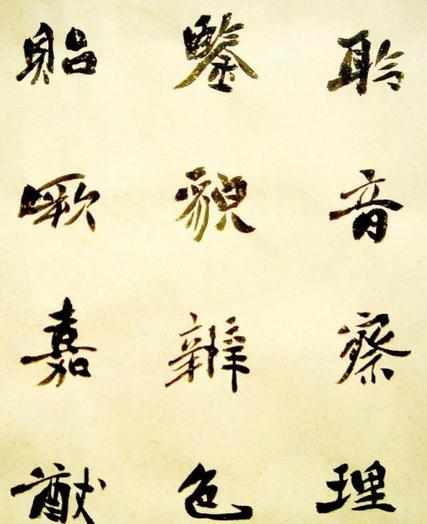 聆音察理
鑒貌辨色
貽厥嘉猷